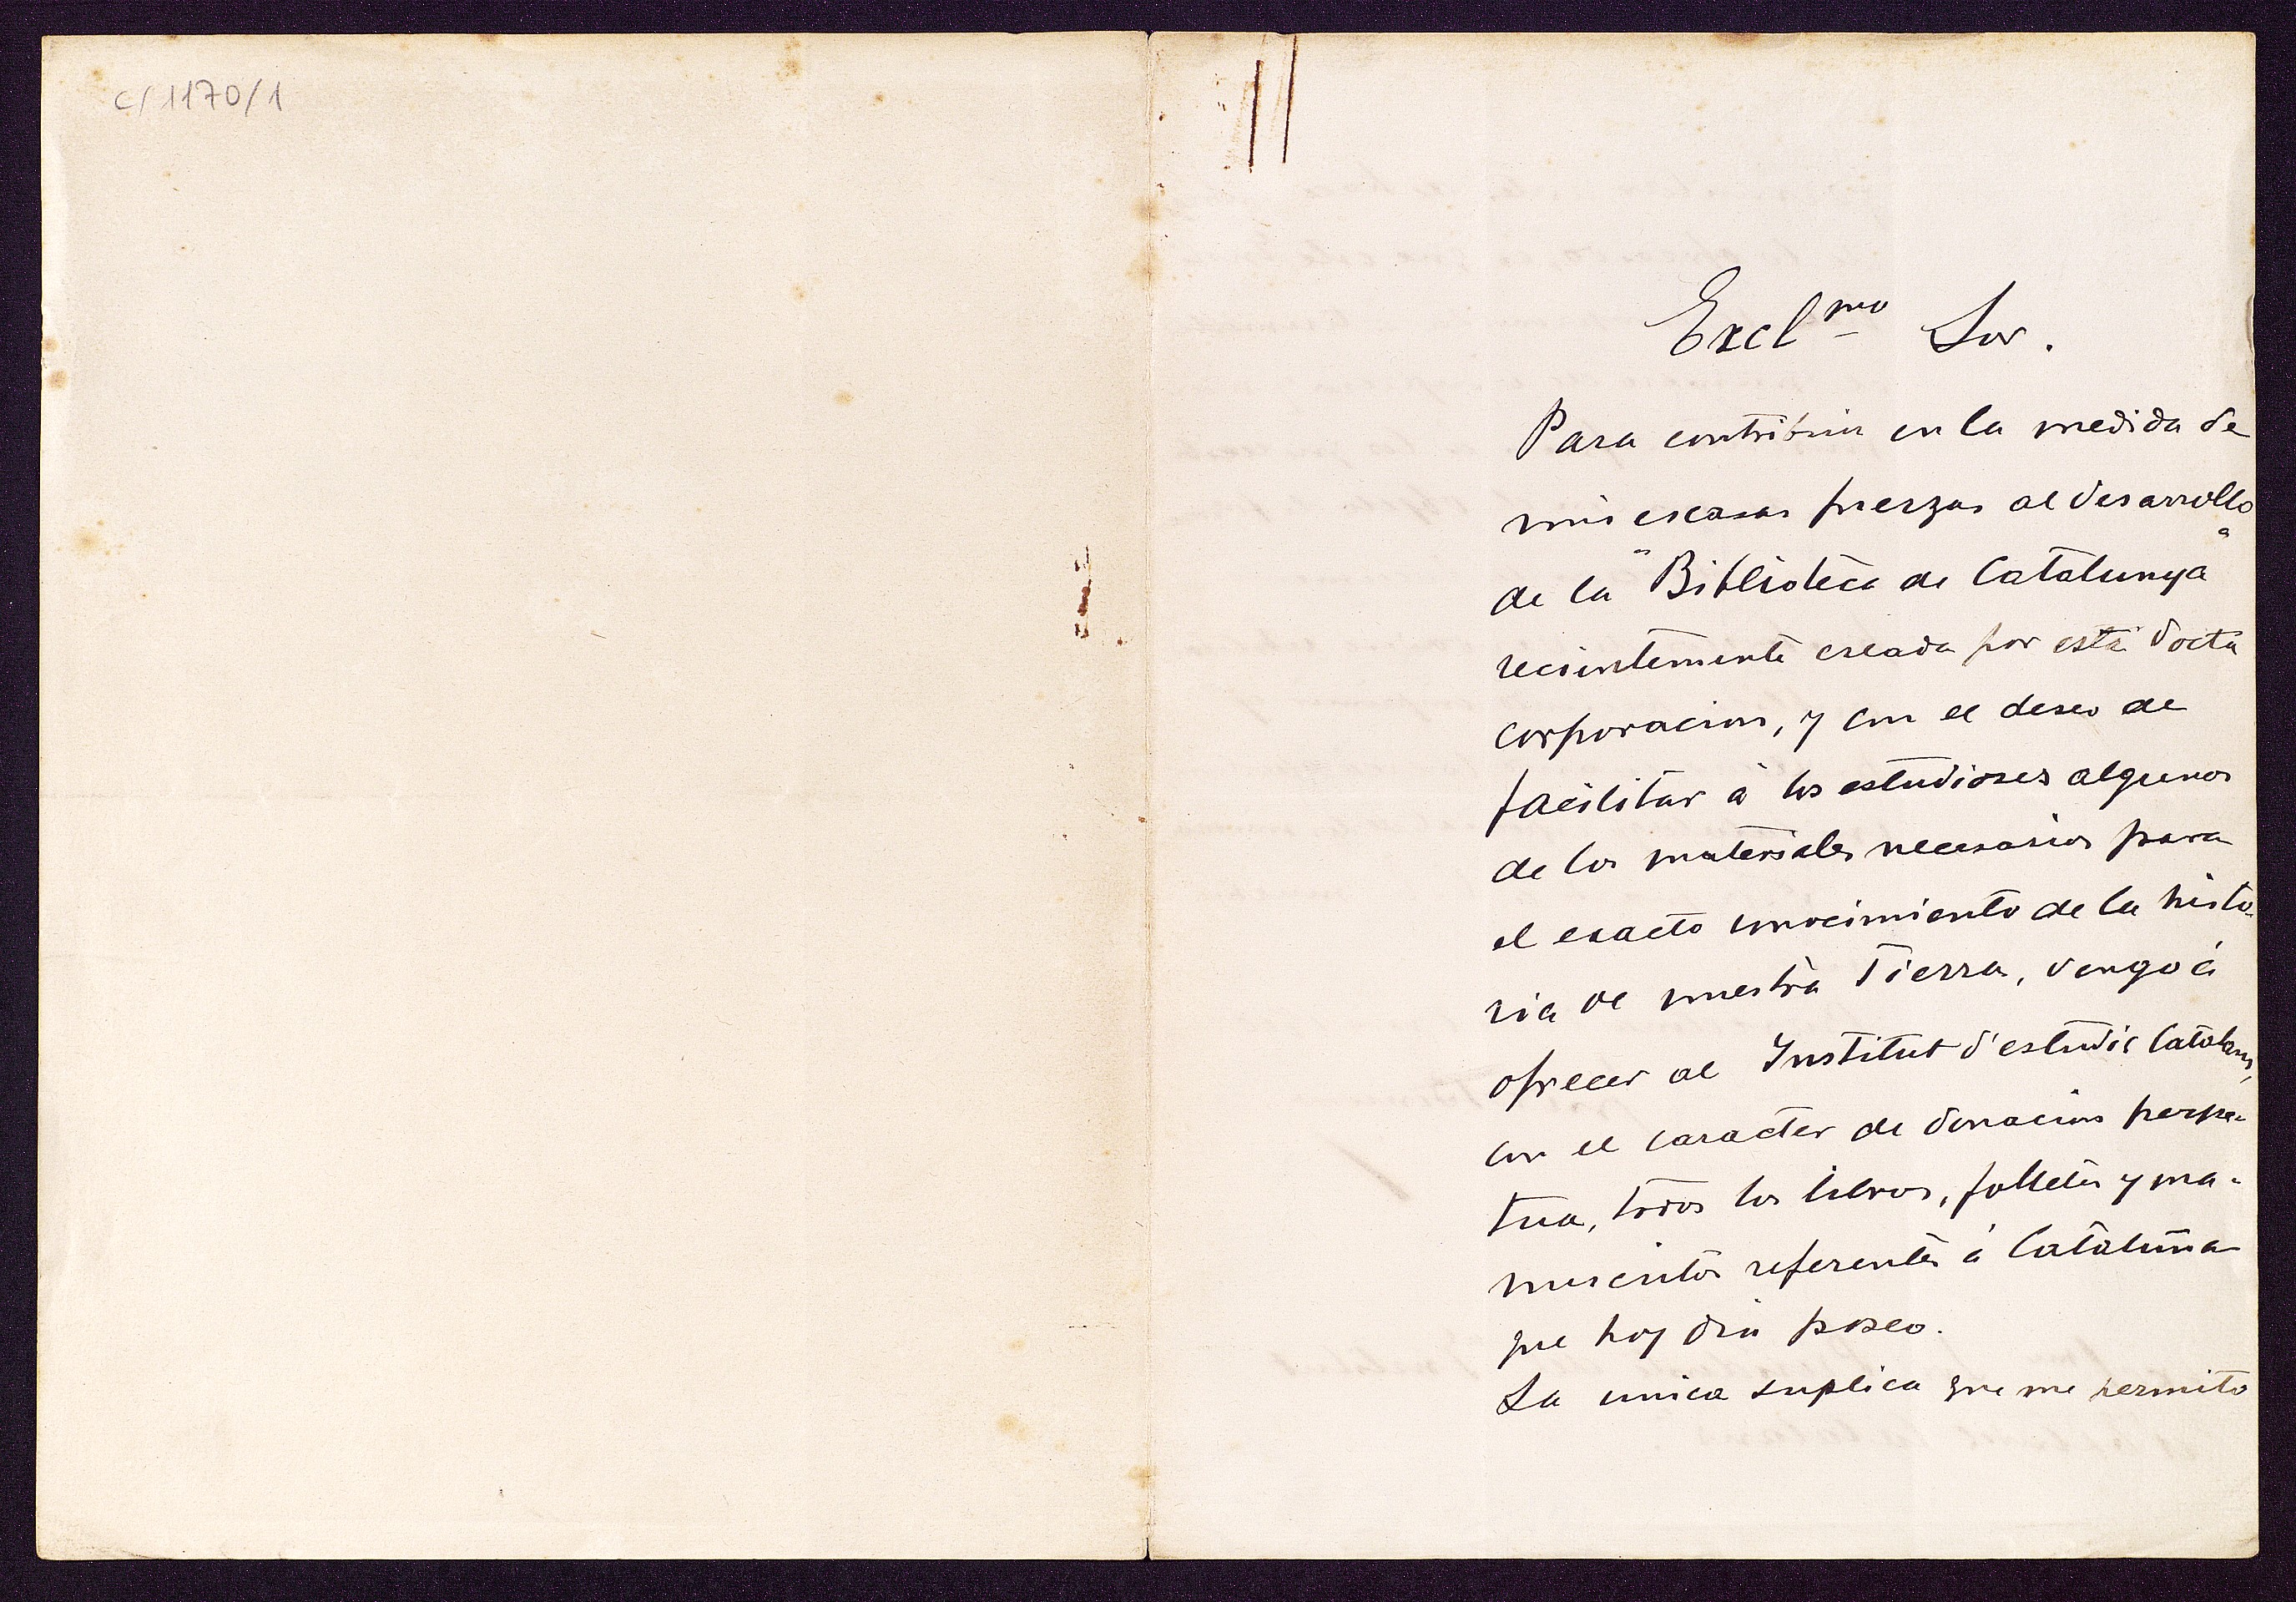 C/ 1170/1
Excl.mo Sor.
Para contribuir en la medida de
mis escasas fuerzas al desarrollo
de la "Biblioteca de Catalunya"
recientemente creada por esta docta
corporacion, y con el deseo de
facilitar á los estudiosos algunos
de los materiales necesarios para
el exacto conocimiento de la histo-
ria de nuestra Tierra, vengo á
ofrecer al Institut d'estudis Catalans,
con el caracter de donacion perpe-
tua, todos los libros, folletos y ma-
nuscritos referentes á Cataluña
que hoy dia poseo.
La unica suplica que me permito